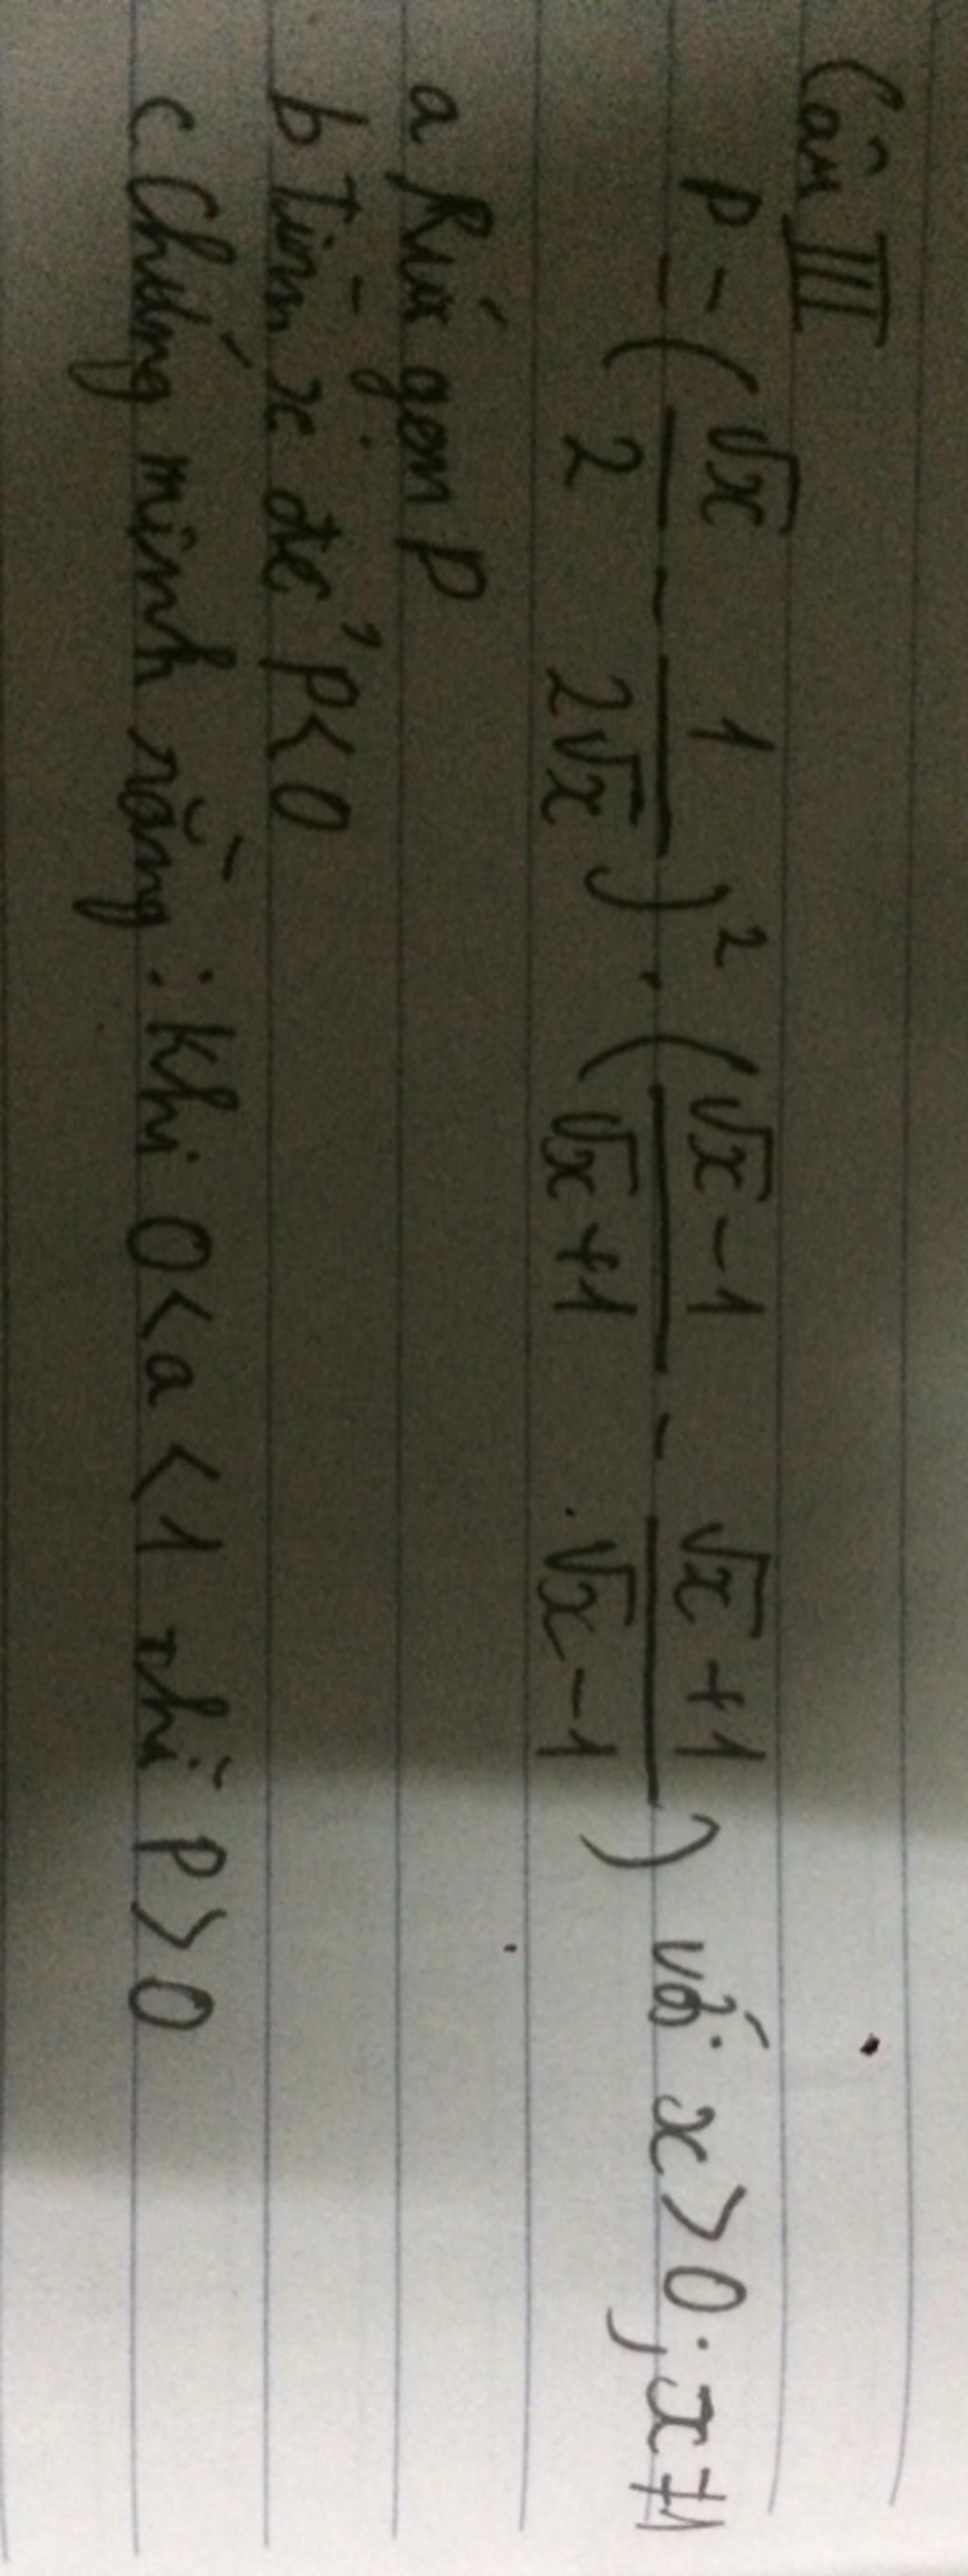 Câu III
P = (√x/2 - 1/2√x)² . (√x-1/√x+1 - √x+1/√x-1) với x>0; x≠1
a Rút gọn P
b Tìm x để P<0
c Chứng minh rằng: Khi 0<a<1 thì P>0